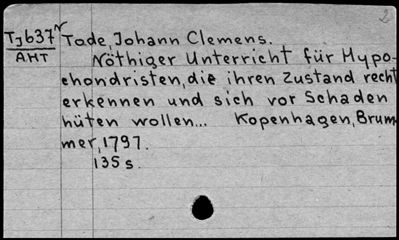 2
Tj637r Tode, Johann Clemens.
AHT Nöthiger Unterricht für Hypo-
chondristen, die ihren Zustand recht
erkennen und sich vor Schaden
hüten wollen... Kopenhagen, Brum-
mer, 1797.
135 s.